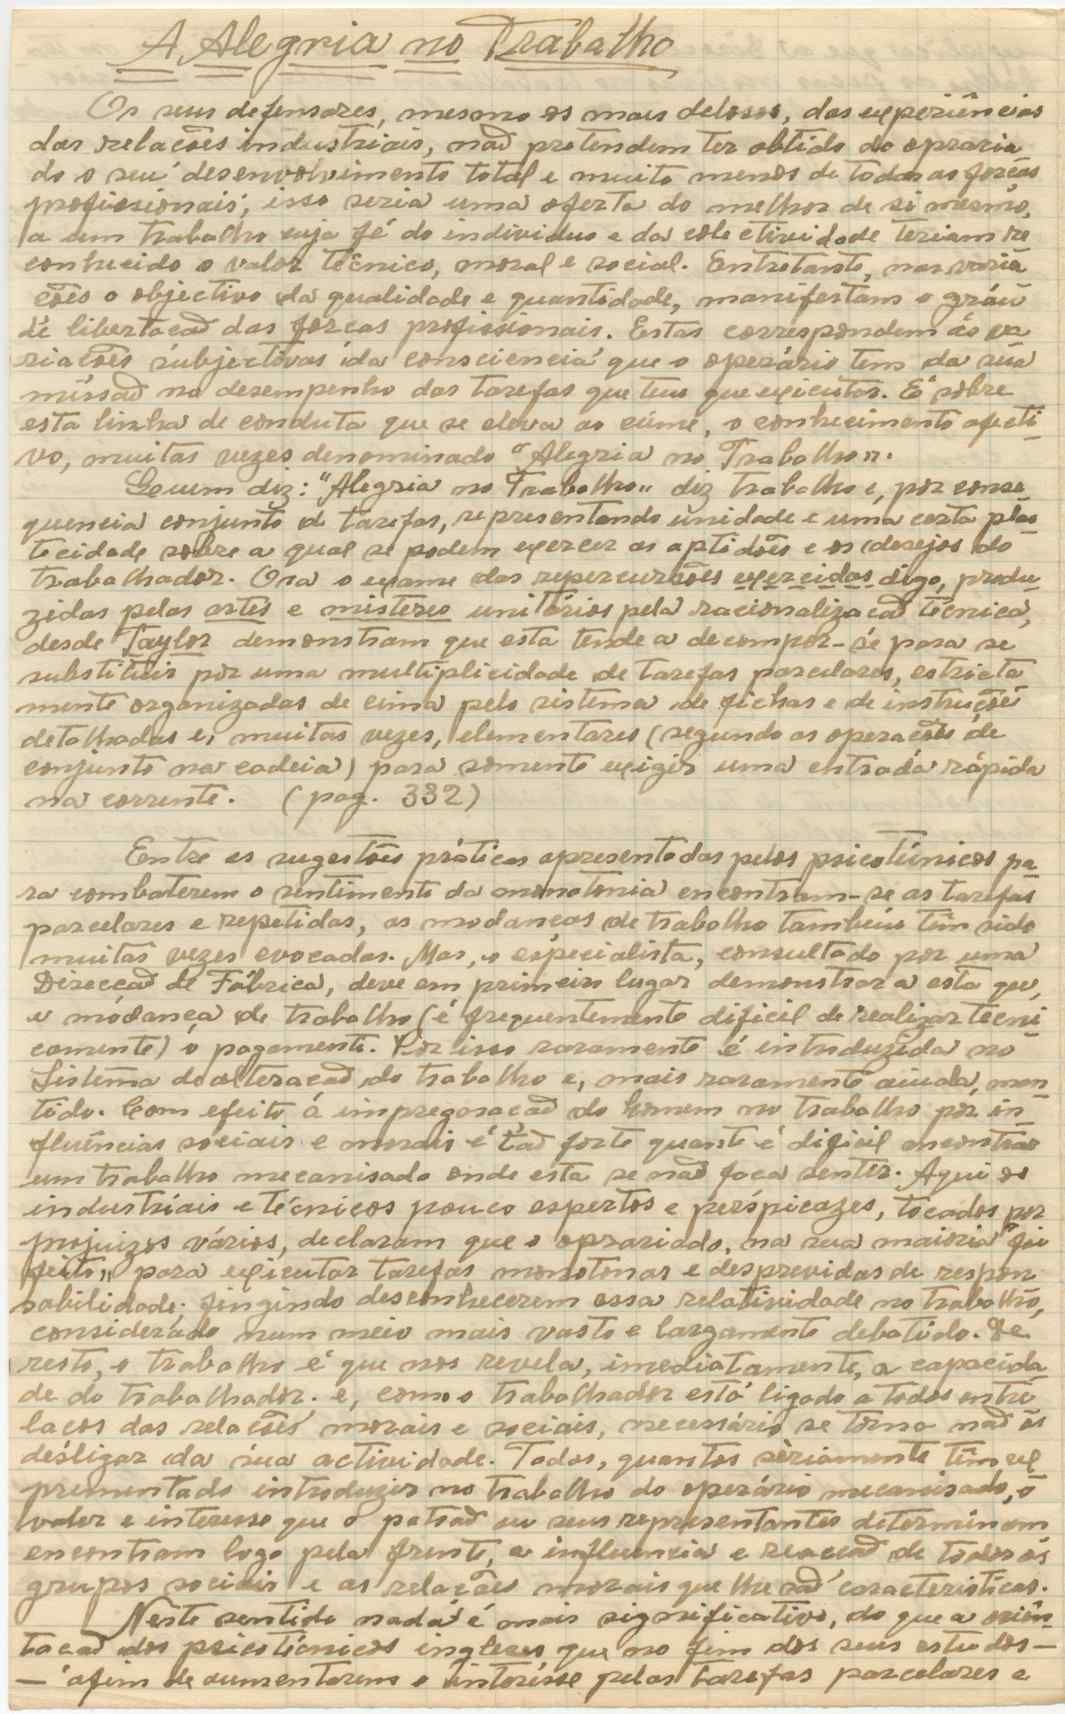 A Alegria no Trabalho
Os seus defensores, mesmo os mais delosos, das experiências
das relacões industriais, naõ pretendem ter obtido do opraria
do o seu desenvolvimento total e muito menos de todas as forças
profissionais; isso seria uma oferta do melhor de si mesmo,
a um trabalho cuja fé do individuo e da colectividade teriam re
conhecido o valor técnico, moral e social. Entretanto, nas varia
cões o objectivo da qualidade e quantidade, manifestam o gráu
de libertacaõ das forcas profissionais. Estas correspondem ás va
riacões subjectivas da consciencia que o operário tem da sua
missaõ no desempenho das tarefas que tem que executar. É sobre
esta linha de conduta que se eleva ao cume, o conhecimento afecti-
vo, muitas vezes denominado "Alegria no Trabalho".
diz: "Alegria no Trabalho" diz trabalho e, por conse
quencia conjunto de tarefas, representando unidade e uma certa plas
tecidade sobre a qual se podem exercer as aptidões e os desejos do
trabalhador. Ora o exame das repercursões exercidas digo, produ-
zidas pelas artes e misteres unitários pela racionalizacaõ técnica,
desde Taylor demonstram que esta tende a decompor-se para se
substituir por uma multiplicidade de tarefas parcelares, estricta
mente organizadas de cima pelo sistema de fichas e de instruções
detalhadas e, muitas vezes, elementares (segundo as operacões de
conjunto na cadeia) para somente exigir uma entrada rápida
na corrente. (pag. 332)
Entre as sugestões práticas apresentadas pelos psicotécnicos pa-
ra combaterem o sentimento da monotonia encontram-se as tarefas
parcelares e repetidas, as modancas de trabalho tambem têm sido
muitas vezes evocadas. Mas, o especialista, consultado por uma
Direccaõ de Fábrica, deve em primeiro lugar demonstrar a esta que,
a módança de trabalho (é frequentemente dificil de realizar tecni
camente) o pagamento. Por isso raramente é introduzida no
Sistêma de alteracaõ do trabalho e, mais raramente ainda, man-
tido. Com efeito á impregnaçaõ do homem no trabalho por in-
fluências sociais e morais é taõ forte quanto é dificil encontrar
um trabalho mecanisado onde esta se naõ faca sentir. Aqui os
industriais e técnicos pouco espertos e perspicazes, tocados por
prejuizos vários, declaram que o oprariado, na sua maioria "foi
feito" para executar tarefas monotonas e desprevidas de respon-
sabilidade; fingindo desconhecerem essa relatividade no trabalho,
considerado num meio mais vasto e largamente debatido. De
resto, o trabalho é que nos revela, imediatamente, a capacida-
de do trabalhador. e, como o trabalhador está ligado a todos entre
lacos das relacões morais e sociais, necessário se torna naõ os
desligar da sua actividade. Todos, quantos sèriamente têm ex
prementado introduzir no trabalho do operário mecanisado, o
valor e interesse que o patraõ ou seus representantes determinam
encontram logo pela frente, a influencia e reaccaõ de todos os
grupos sociais e as relacões morais que lhe saõ caracteristicas.
Neste sentido nada é mais significativo, do que a orien-
tacaõ dos psicotécnicos ingleses que no fim dos seus estudos—
— afim de aumentarem o interêsse pelas tarefas parcelares e